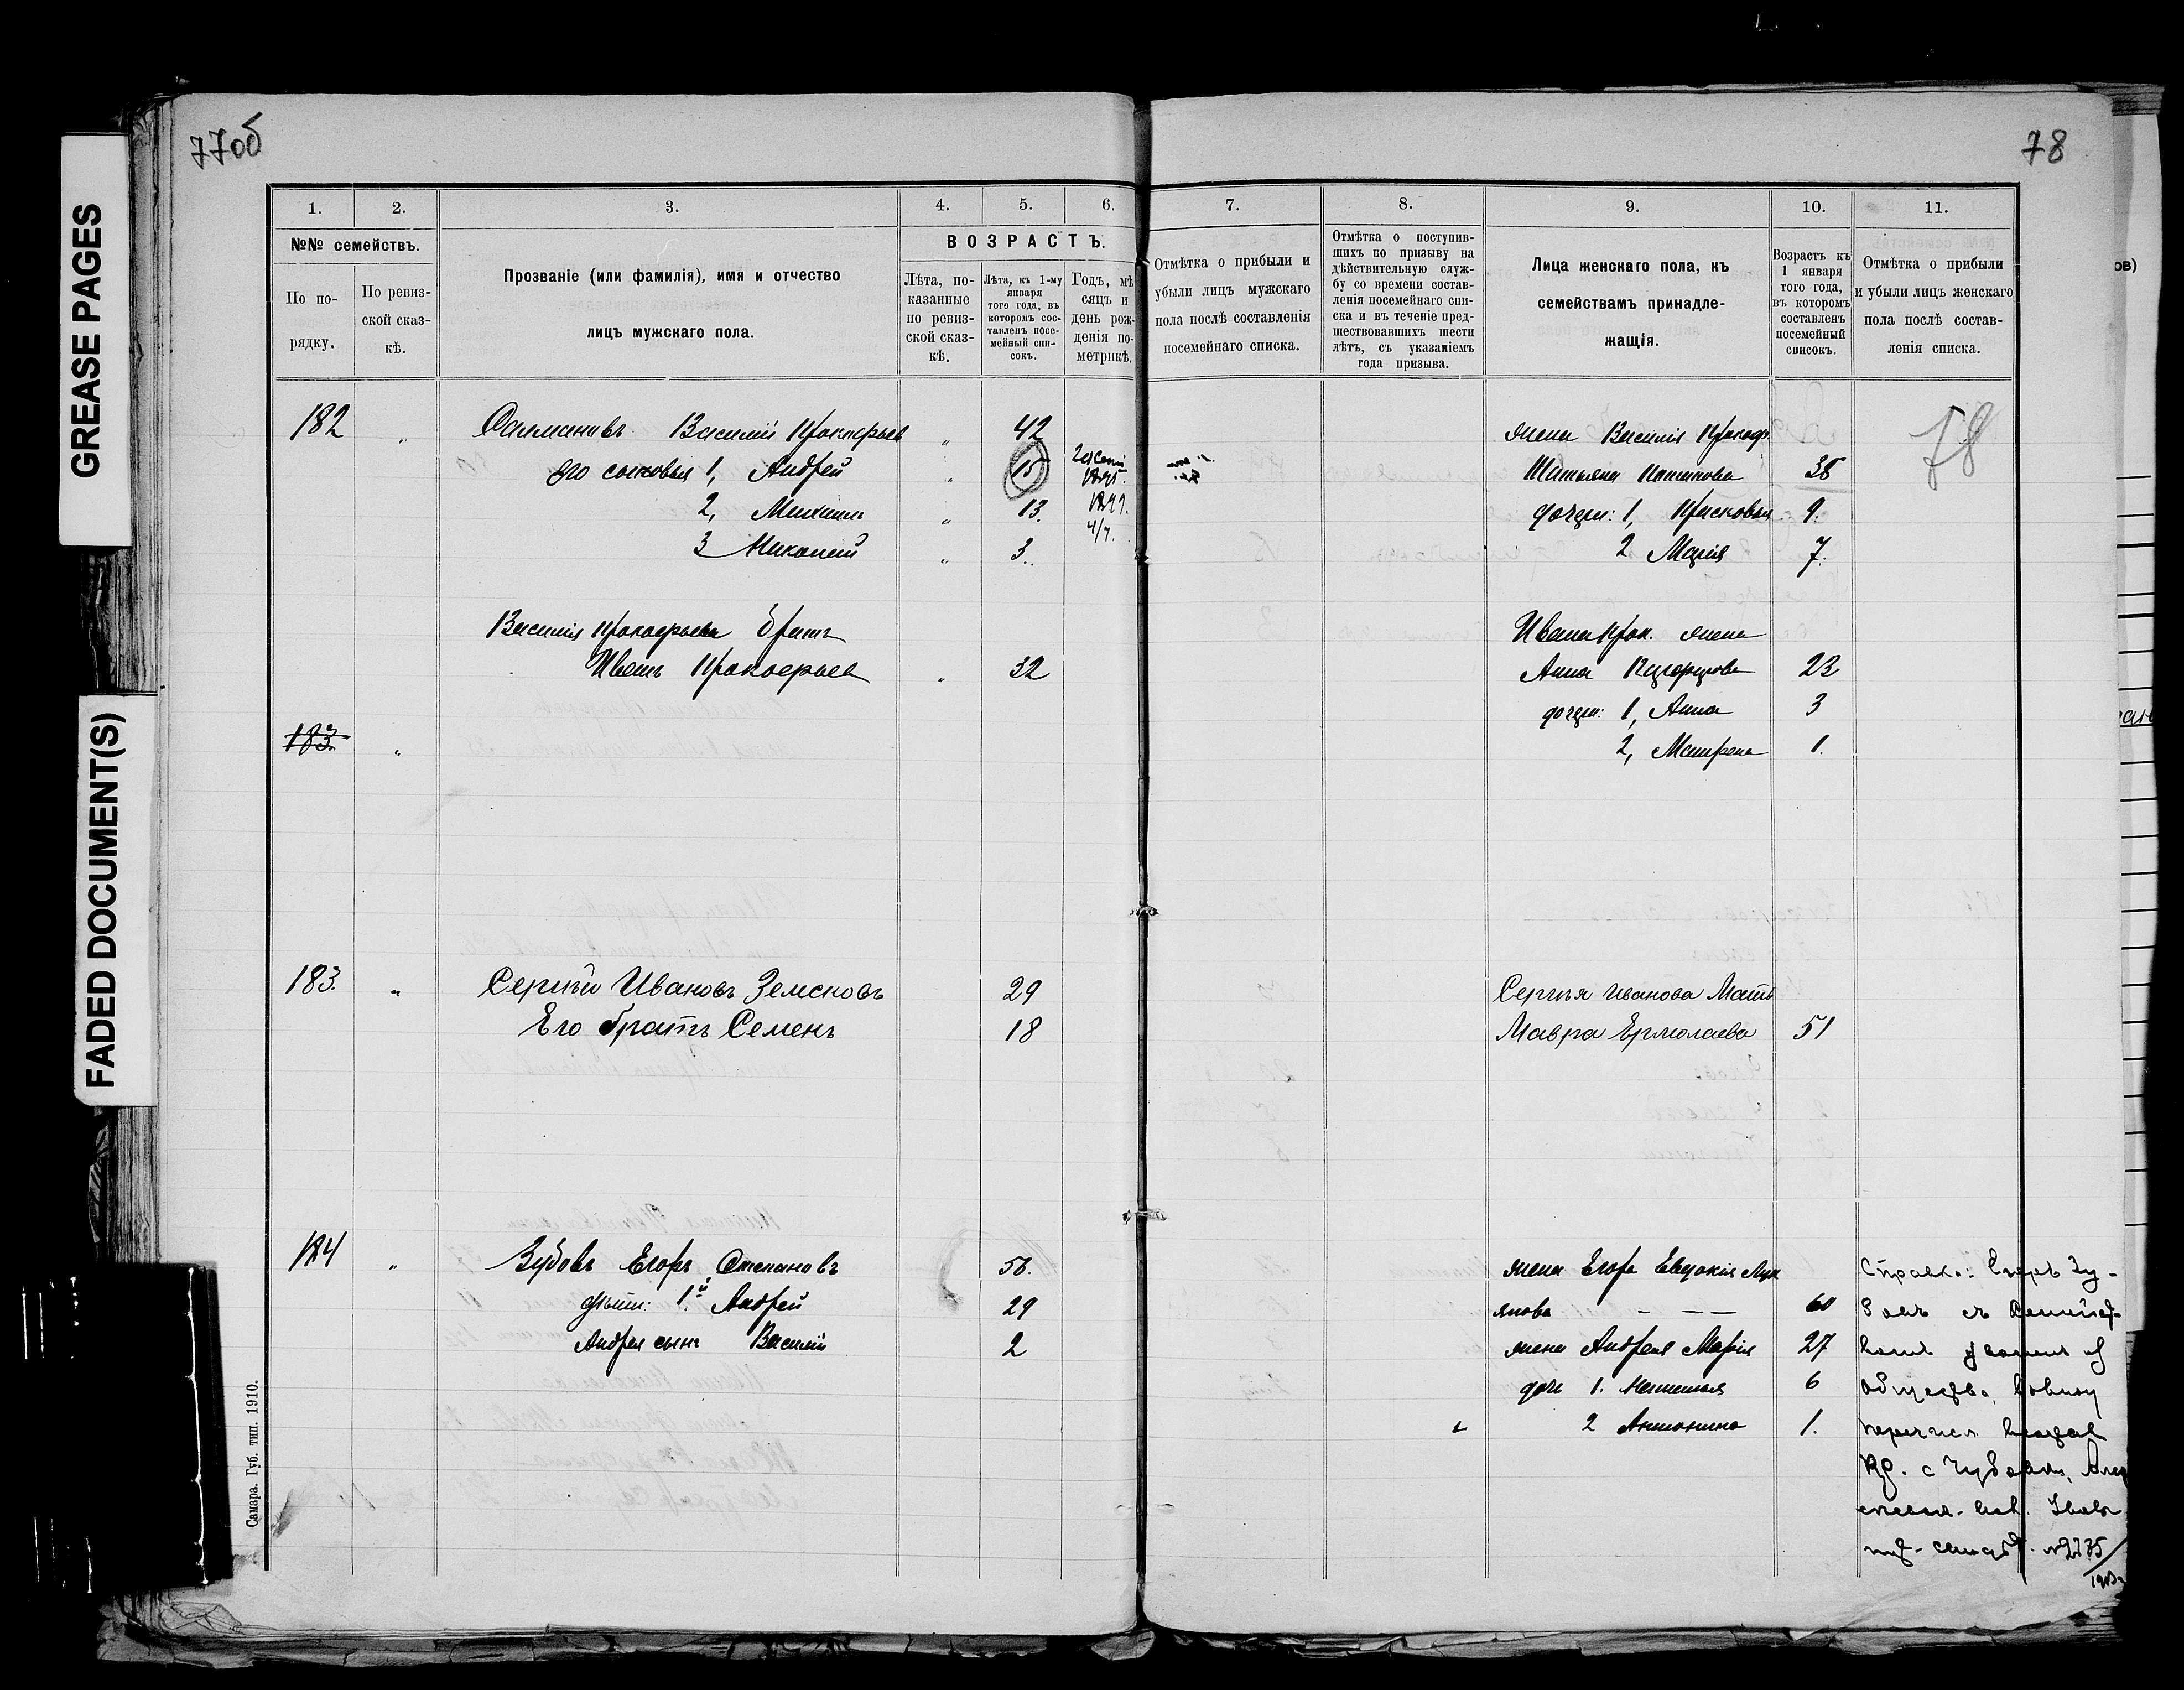 GREASE PAGES
FADED DOCUMENT(S)
77об
78
1. 2. 3. 4. 5. 6.
№№ семействъ.
По порядку.
По ревизской сказкѣ.
Прозваніе (или фамилія), имя и отчество
лицъ мужскаго пола.
ВОЗРАСТЪ.
Лѣта, показанные по ревизской сказкѣ.
Лѣта, къ 1-му января того года, въ которомъ составленъ посемейный списокъ.
Годъ, мѣсяцъ и день рожденія по метрикѣ.
7. 8. 9. 10. 11.
Отмѣтка о прибыли и
убыли лицъ мужскаго
пола послѣ составленія
посемейнаго списка.
Отмѣтка о поступив-
шихъ по призыву на
дѣйствительную служ-
бу со времени состав-
ленія посемейнаго спи-
ска и въ теченіе пред-
шествовавшихъ шести
лѣтъ, съ указаніемъ
года призыва.
Лица женскаго пола, къ
семействамъ принадле-
жащія.
Возрастъ къ
1 января
того года,
въ которомъ
составленъ
посемейный
списокъ.
Отмѣтка о прибыли
и убыли лицъ женскаго
пола послѣ состав-
ленія списка.
182 " Салмановъ Василій Прокофьев " 42
его сыновья 1, Андрей " 15 1895.
2, Михаилъ " 13. 4/7.
3 Николай " 3
Василія Прокофьева братъ
Иванъ Прокофьев " 32
183. "
жена Василія Прокоф.
Татьяна 38
дочери: 1, Прасковья 9.
2 Марія 7.
78
Ивана Прок. жена
Анна 23
дочери: 1, Анна 3
2, Матрена 1.
183. " Сергѣй Ивановъ Земсковъ 29
Его братъ Семенъ 18
Сергѣя Иванова Мать
Мавра Ермолаева 51
184 " Зубовъ Егоръ Степановъ 56.
дѣти: 1й Андрей 29
Андрея сынъ Василій 2
жена Егора Евдокія Лук
янова — — — 60
жена Андрея Марія 27
дочь 1. Наталья 6
2 Антонина 1.
Справка: Егоръ Зу-
бовъ съ семейст-
вомъ уволенъ из
общества
№2735/
Самара. Губ. тип. 1910.